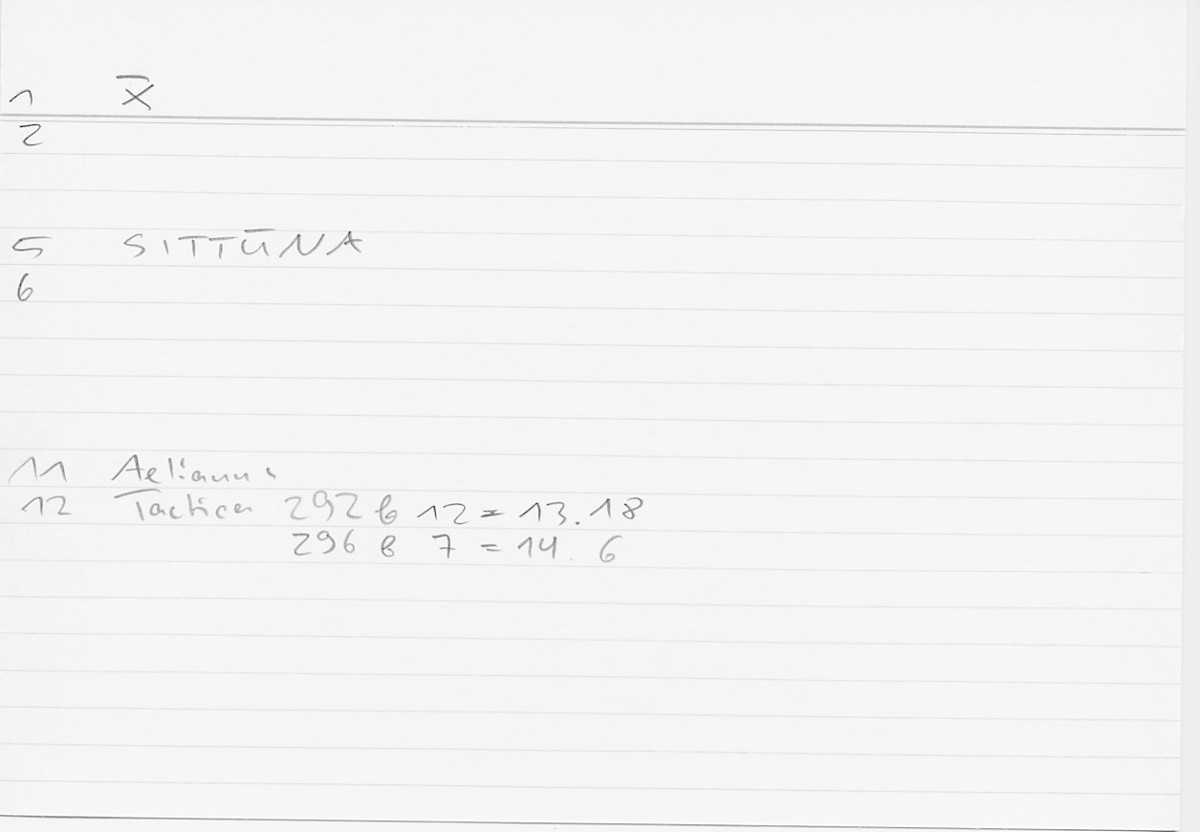 1 X̅
2
5 SITTŪNA
6
11 Aelianus
12 Tactica 292 b 12 = 13.18
296 b 7 = 14.6